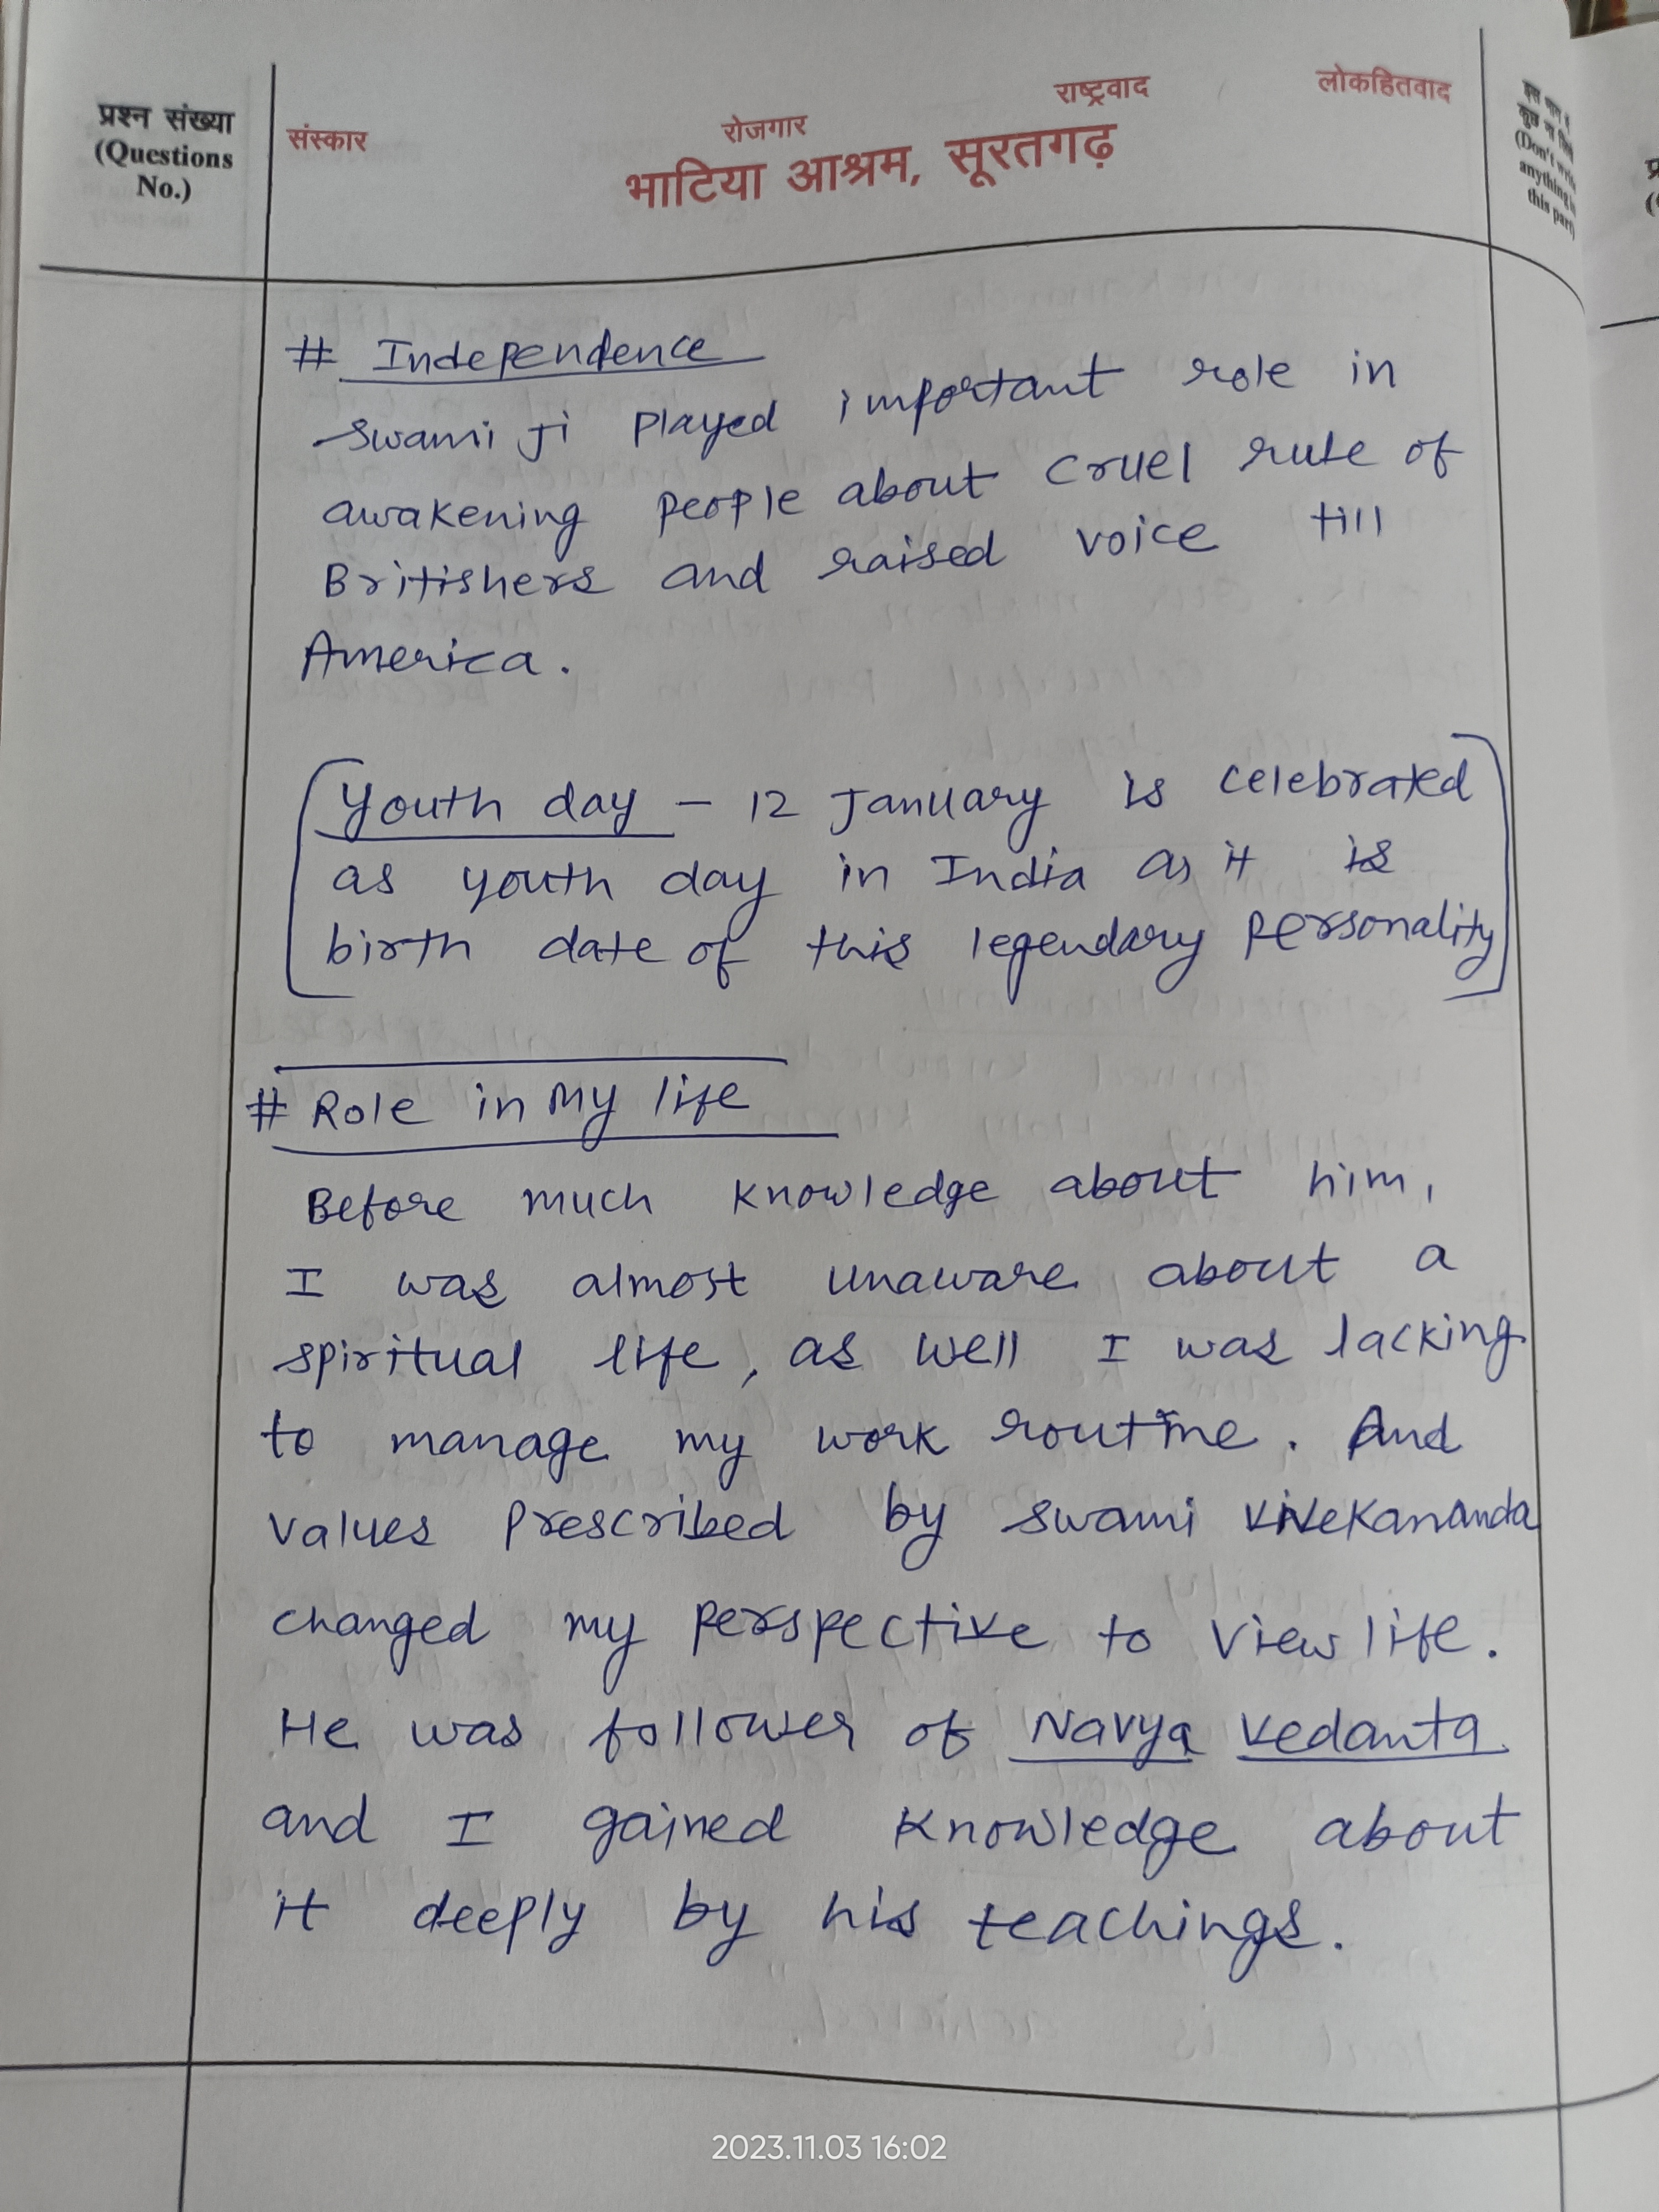 प्रश्न संख्या
(Questions
No.)
संस्कार रोजगार राष्ट्रवाद लोकहितवाद
भाटिया आश्रम, सूरतगढ़
(Don't write
anything in
this part)
# Independence
Swami Ji Played important role in
awakening people about cruel rule of
Britishers and raised voice till
America.
Youth day - 12 January is celebrated
as youth day in India as it is
birth date of this legendary personality
# Role in My life
Before much knowledge about him,
I was almost unaware about a
spiritual life, as well I was lacking
to manage my work routine. And
values prescribed by Swami Vivekananda
changed my perspective to view life.
He was follower of Navya Vedanta
and I gained knowledge about
it deeply by his teachings.
2023.11.03 16:02